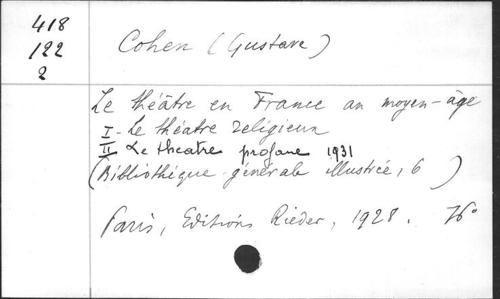 418
122
2
Cohen (Gustave)
Le théâtre en France au moyen-âge
I - Le théatre religieux
II Le theatre profane 1931
(Bibliothèque générale illustrée, 6 )
Paris, Editions Rieder, 1928.